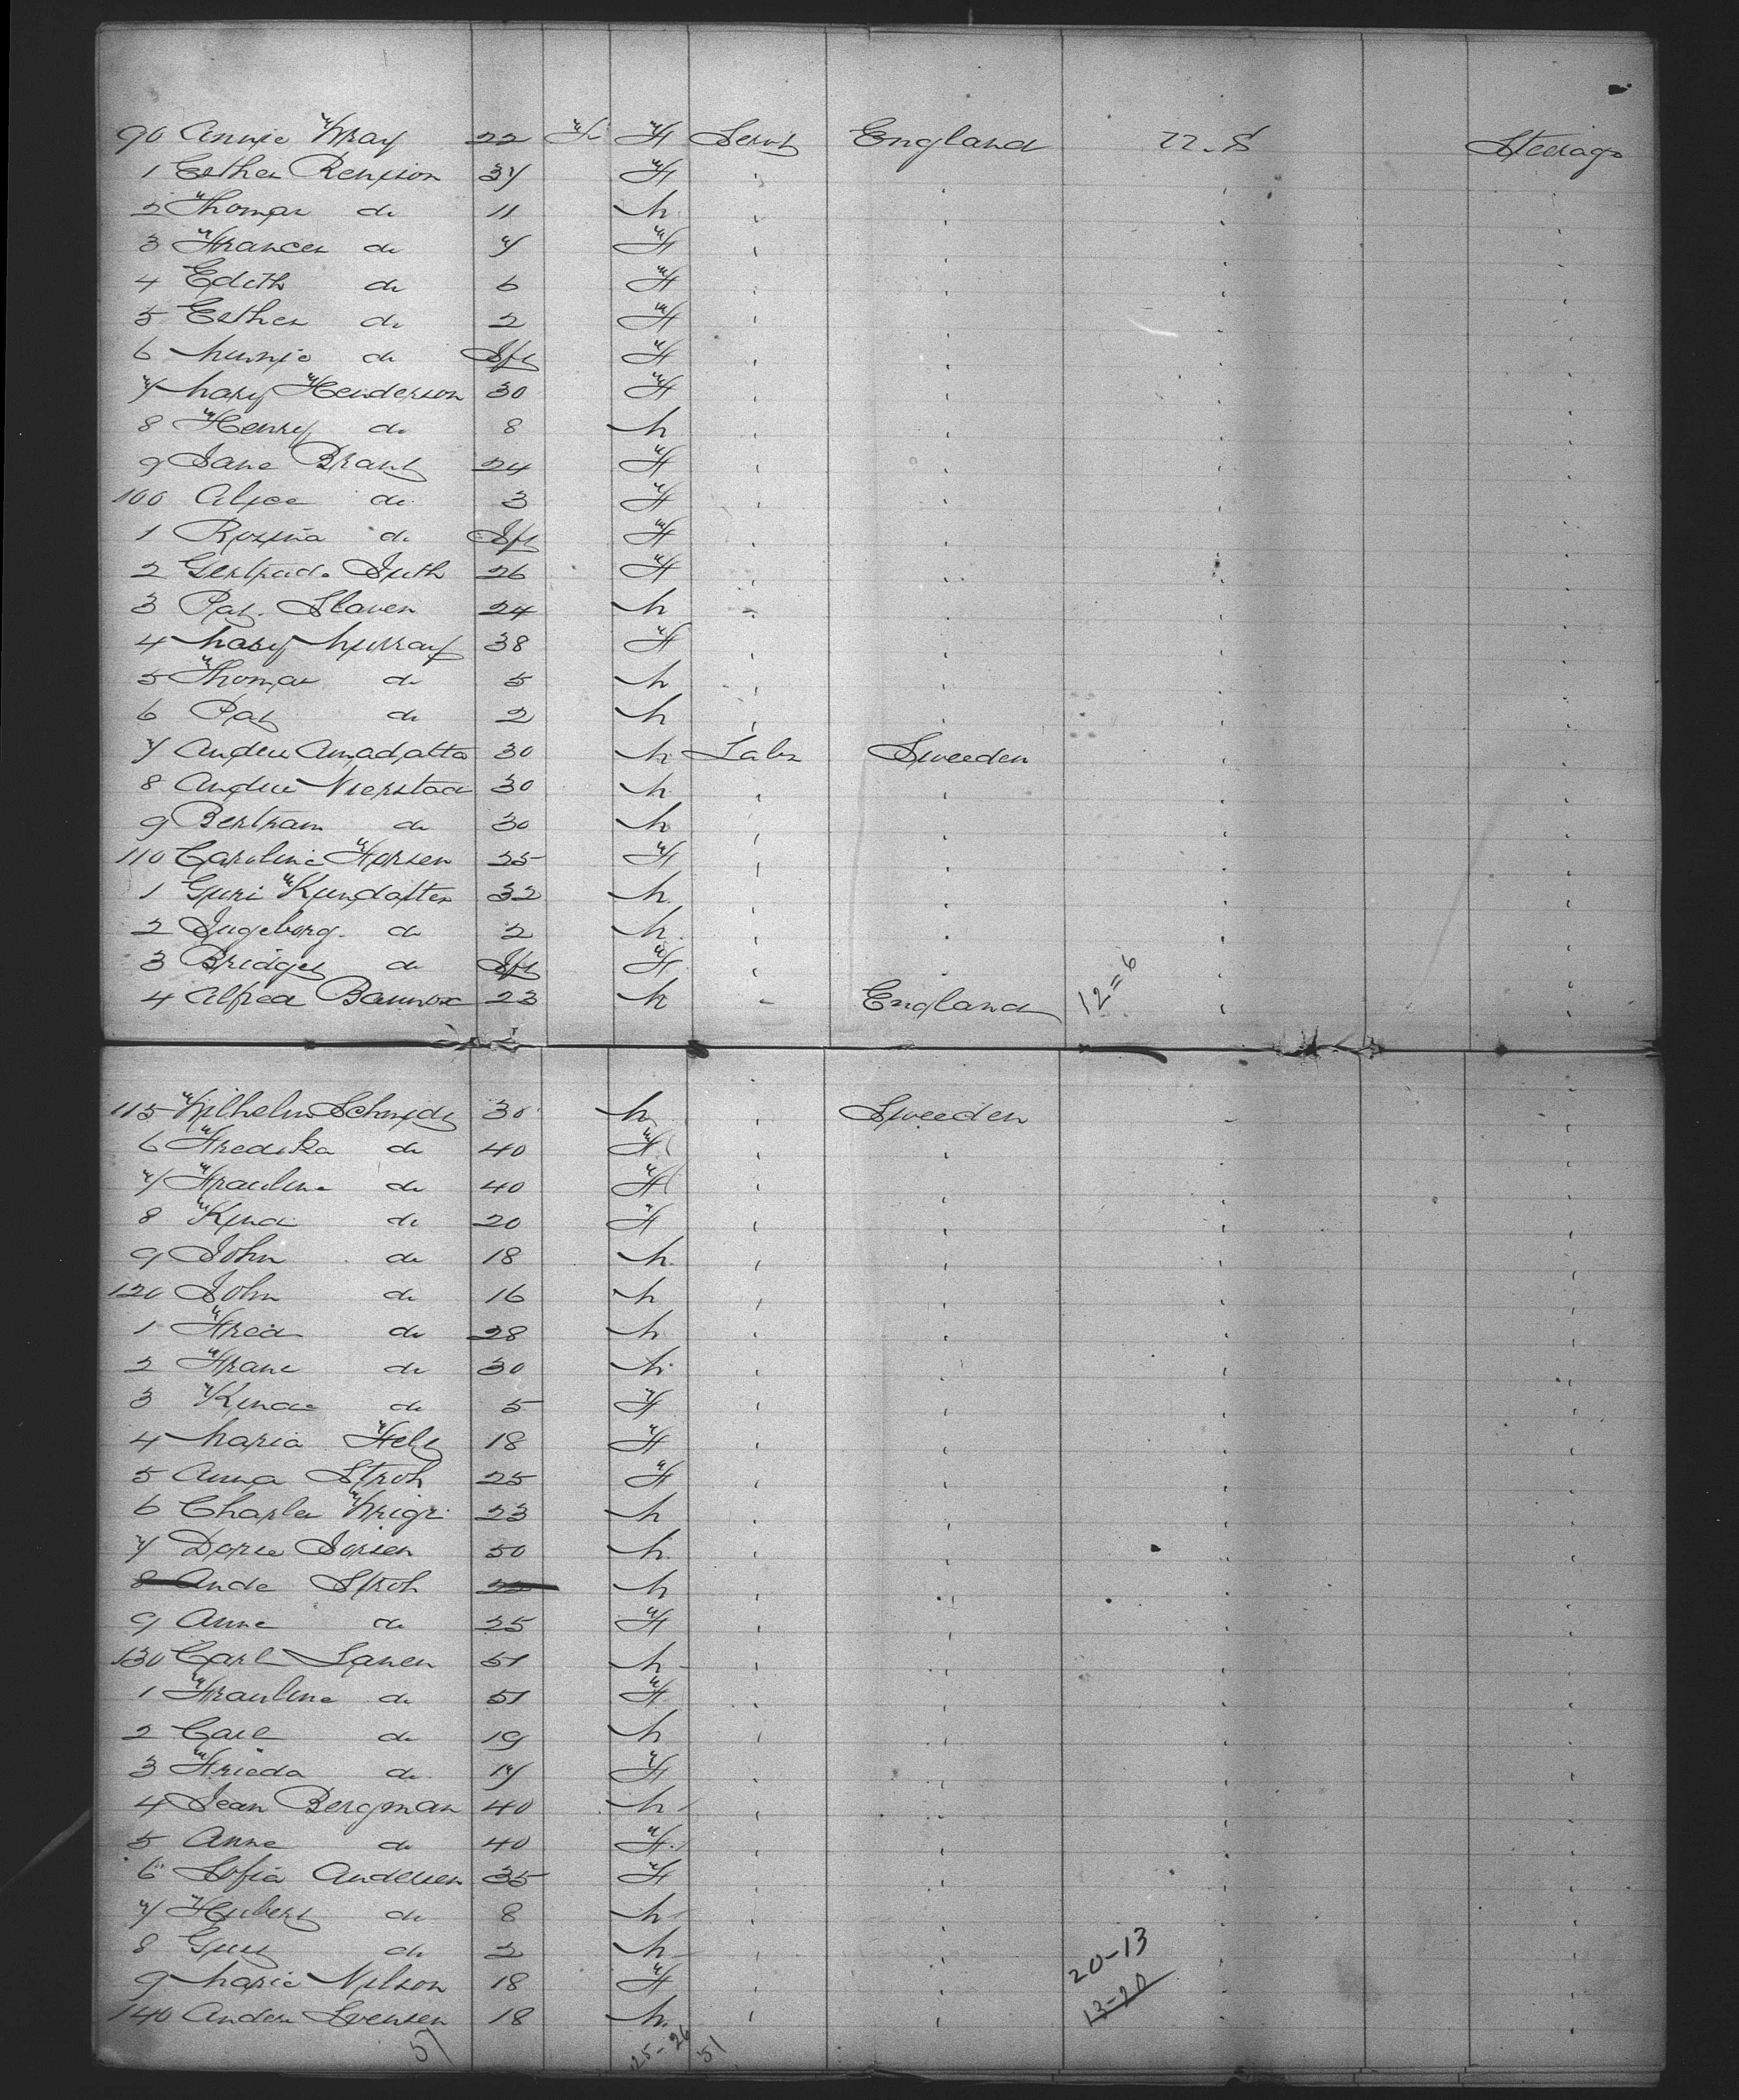 90 Annie Wray 22 F Servt England U.S Steerage
1 Esther Renison 37 F " " " "
2 Thomas do 11 M " " " "
3 Frances do 7 F " " " "
4 Edith do 6 F " " " "
5 Esther do 2 F " " " "
6 Minnie do Inft F " " " "
7 Mary Henderson 30 F " " " "
8 Henry do 8 M " " " "
9 Jane Brant 24 F " " " "
100 Alice do 3 F " " " "
1 Rosina do Inft F " " " "
2 Gertrude 26 F " " " "
3 Pat. Slaven 24 M " " " "
4 Mary Murray 38 F " " " "
5 Thomas do 5 M " " " "
6 Pat do 2 M " " " "
7 30 M Labr Sweeden " "
8 30 M " " " "
9 Bertram do 30 M " " " "
110 Caroline 25 F " " " "
1 Guri 32 M " " " "
2 Ingeborg do 2 M " " " "
3 Bridget do Inft F " " " "
4 Alfred 23 M " England " "
12=6
115 Wilhelm Schmidt 30 M " Sweeden " "
6 Fredika do 40 F " " " "
7 Frauline do 40 F " " " "
8 do 20 F " " " "
9 John do 18 M " " " "
120 John do 16 M " " " "
1 Fred do 28 M " " " "
2 Franc do 30 M " " " "
3 do 5 F " " " "
4 Maria 18 F " " " "
5 Anna Stroh 25 F " " " "
6 Charles 23 M " " " "
7 50 M " " " "
8 Stroh M " " " "
9 Anne do 25 F " " " "
130 Carl 51 M " " " "
1 Frauline do 51 F " " " "
2 Carl do 19 M " " " "
3 Frieda do 17 F " " " "
4 Jean Bergman 40 M " " " "
5 Anne do 40 F " " " "
6 Sofia Andersen 35 F " " " "
7 Hubert do 8 M " " " "
8 Gust do 2 M " " " "
20-13
9 Marie Nilson 18 F " " " "
13-20
140 Anders Svensen 18 M " " " "
51 25-26 51